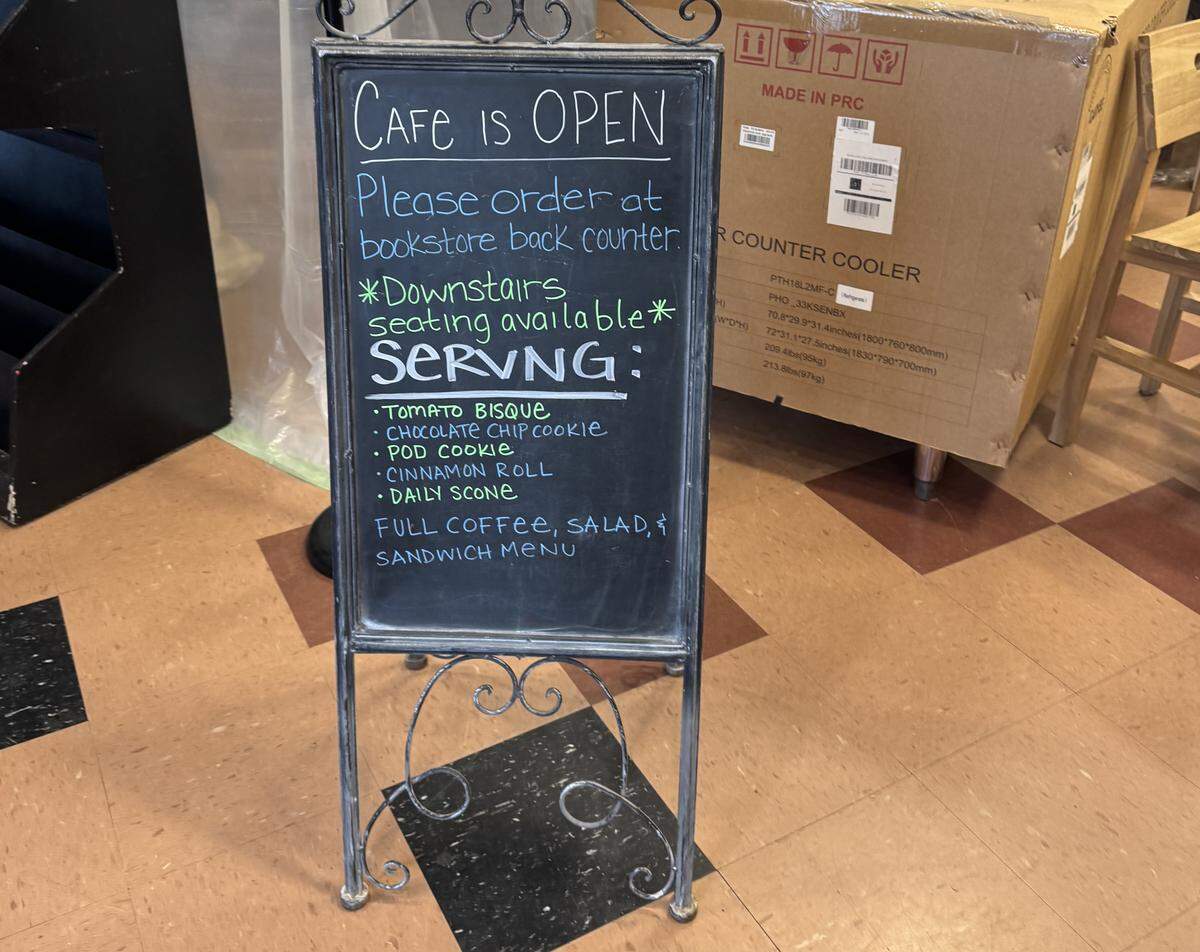 CAFe IS OPEN
Please order at
bookstore back counter.
*Downstairs
seating available*
SeRVNG:
• TOMATO BISQUE
• CHOCOLATE CHIP COOKIE
• POD COOKIE
• CINNAMON ROLL
• DAILY SCONE
FULL COFFee, SALAD, &
SANDWICH MeNU
MADE IN PRC
R COUNTER COOLER
PTH18L2MF-C
(Refrigerate)
PHO_33KSENBX
70.8*29.9*31.4inches(1800*760*800mm)
(W*D*H) 72*31.1*27.5inches(1830*790*700mm)
209.4lbs(95kg)
213.8lbs(97kg)